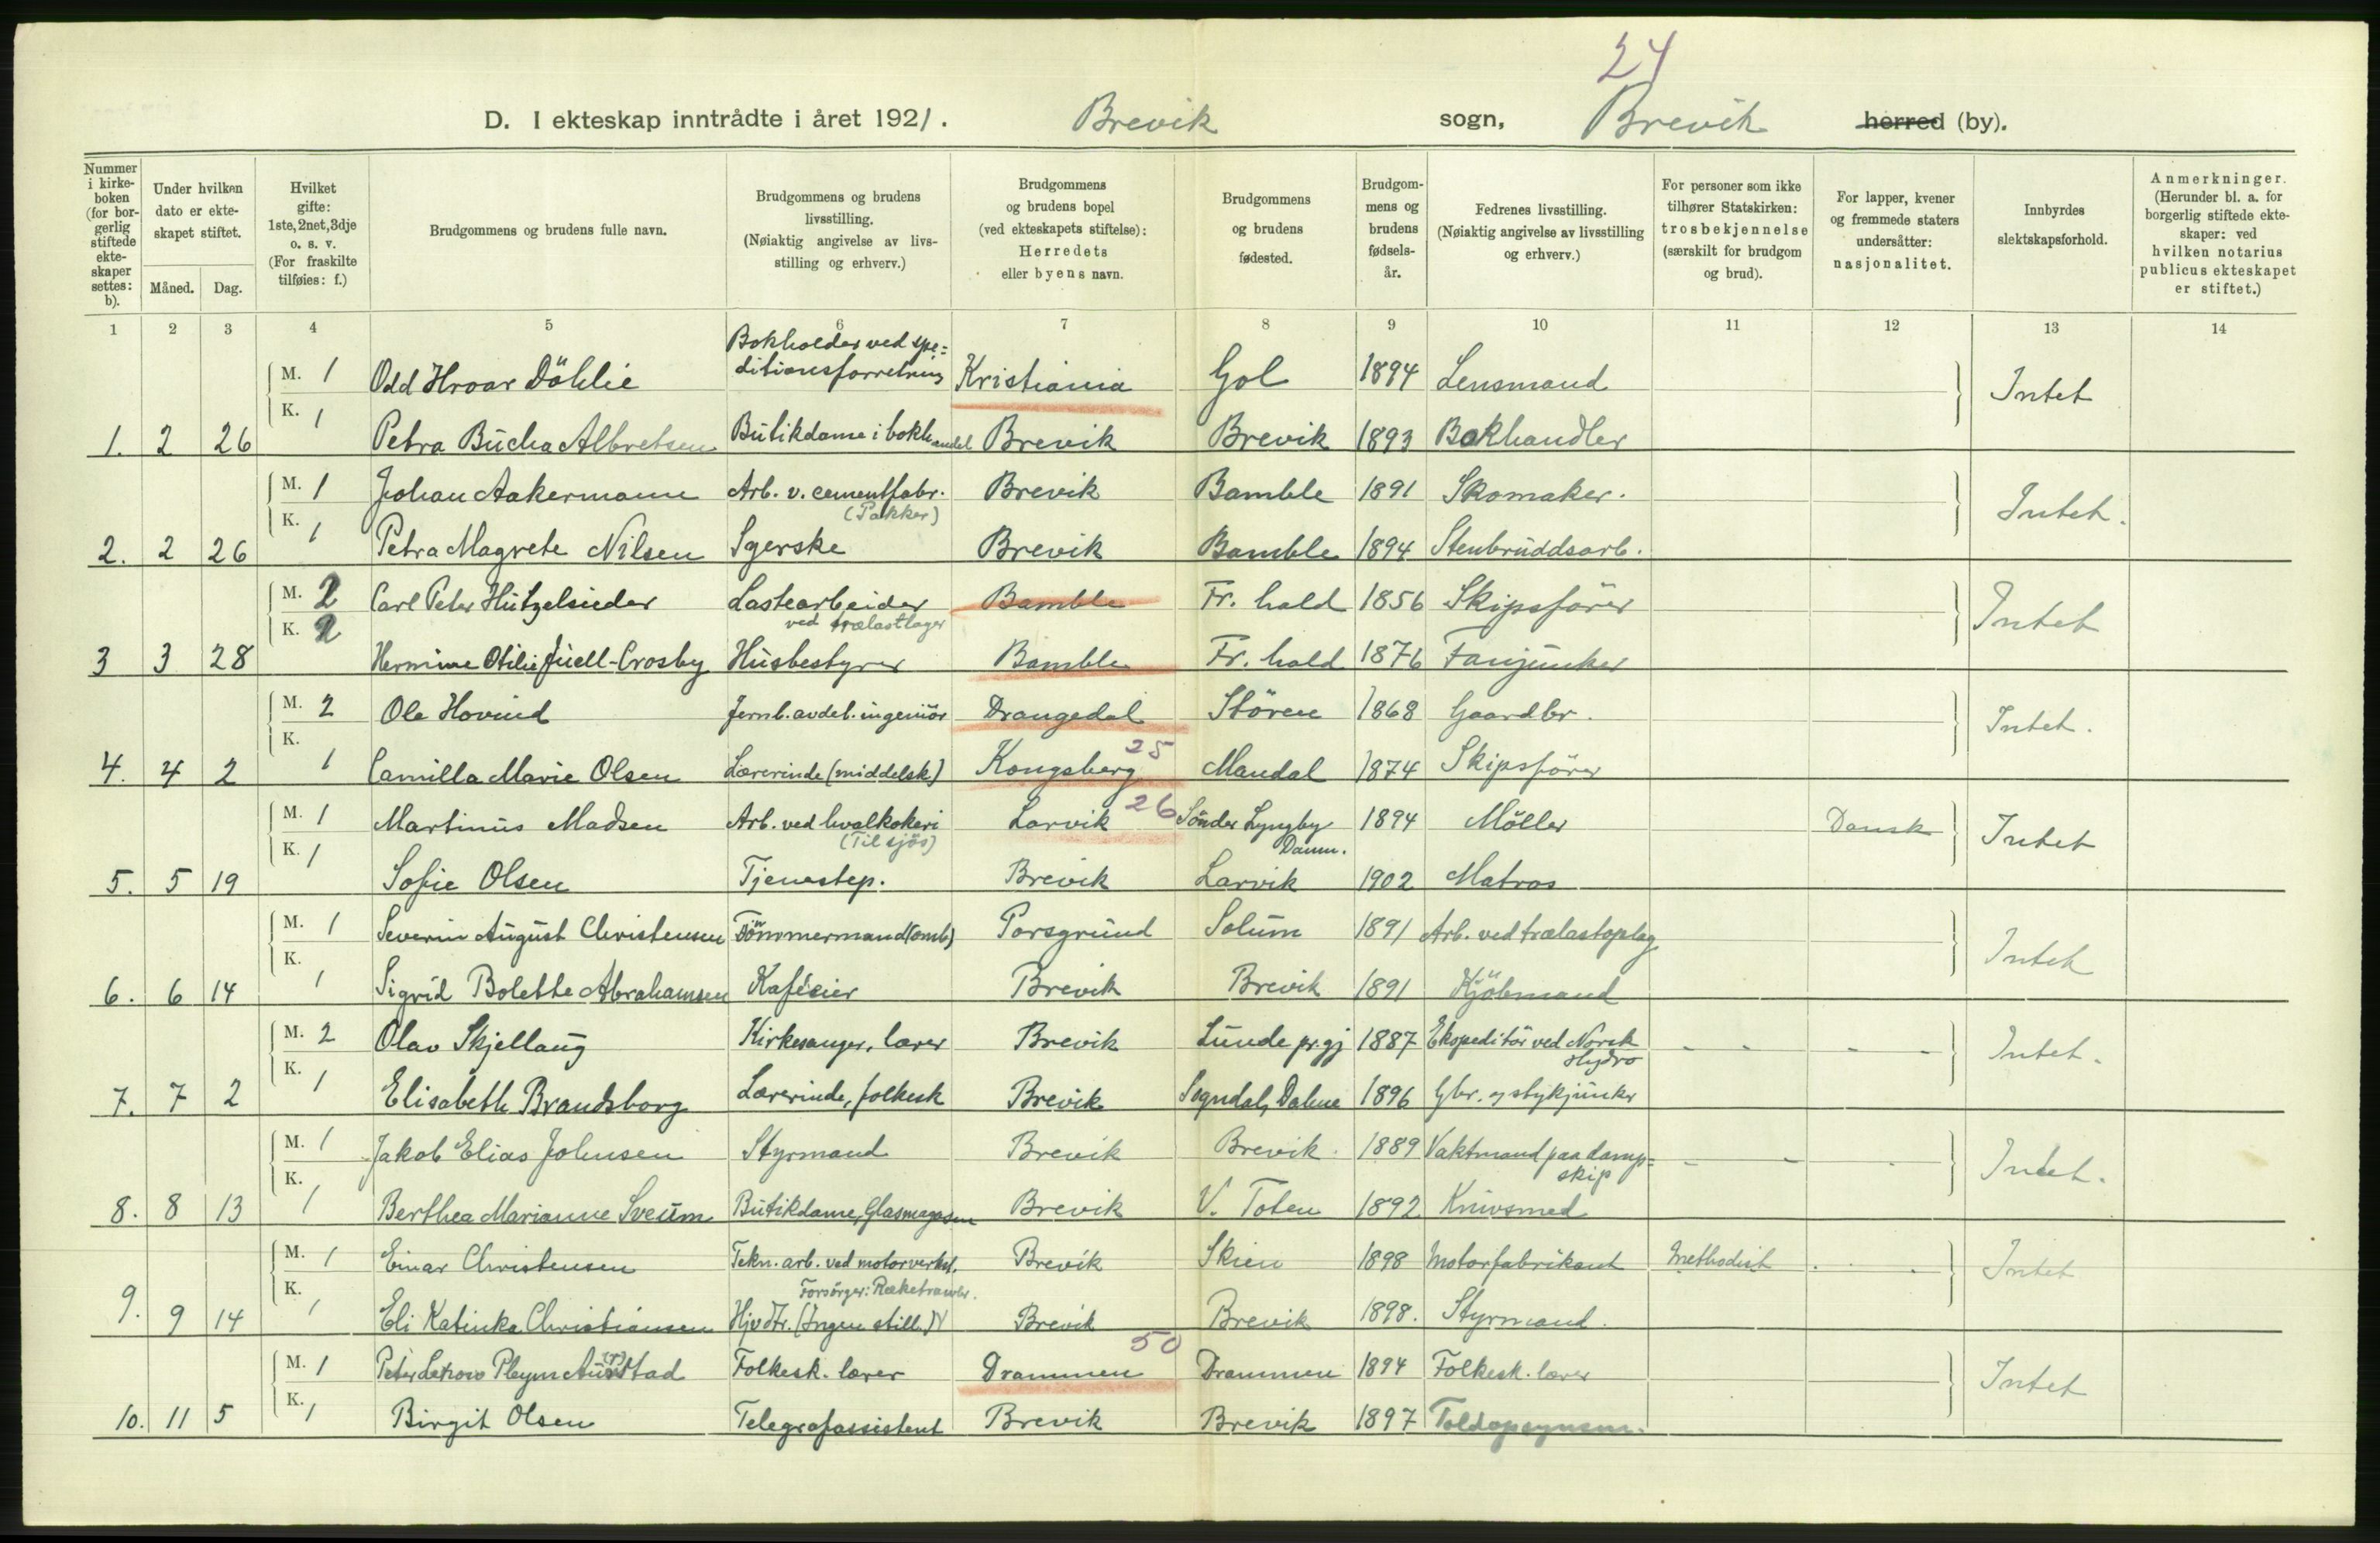 24
D. I ekteskap inntrådte i året 1921. Brevik sogn, Brevik herred (by).
Nummer i kirke-boken (for bor-gerlig stiftede ekte-skaper settes: b).
Under hvilken dato er ekte-skapet stiftet.
Måned. Dag.
Hvilket gifte: 1ste, 2net, 3dje o. s. v. (For fraskilte tilføies: f.)
Brudgommens og brudens fulle navn.
Brudgommens og brudens livsstilling. (Nøiaktig angivelse av livs-stilling og erhverv.)
Brudgommens og brudens bopel (ved ekteskapets stiftelse): Herredets eller byens navn.
Brudgommens og brudens fødested.
Brudgom-mens og brudens fødsels-år.
Fedrenes livsstilling. (Nøiaktig angivelse av livsstilling og erhverv.)
For personer som ikke tilhører Statskirken: trosbekjennelse (særskilt for brudgom og brud).
For lapper, kvener og fremmede staters undersåtter: nasjonalitet.
Innbyrdes slektskapsforhold.
Anmerkninger. (Herunder bl. a. for borgerlig stiftede ekte-skaper: ved hvilken notarius publicus ekteskapet er stiftet.)
1 2 3 4 5 6 7 8 9 10 11 12 13 14
Bokholder ved spe=
M. 1 Odd Hroar Döhlie ditionsforretning Kristiania Gol 1894 Lensmand Intet
1. 2 26 K. 1 Petra Bücha Albretsen Butikdame i bokhandel Brevik Brevik 1893 Bokhandler
M. 1 Johan Aakermann Arb. v. cementfabr. Brevik Bamble 1891 Skomaker.
(Pakker) Intet.
2. 2 26 K. 1 Petra Magrete Nilsen Syerske Brevik Bamble 1894 Stenbruddsarb.
M. 2 Carl Peter Hützelsieder Lastearbeider Bamble Fr. hald 1856 Skipsfører
ved trælastlager Intet
3 3 28 K. 2 Hermine Otilie Juell-Crosby Husbestyrer Bamble Fr. hald 1876 Fanejunker
M. 2 Ole Hovind Jernb. avdel. ingeniör Drangedal Stören 1868 Gaardbr. Intet.
25
4. 4 2 K. 1 Camilla Marie Olsen Lærerinde (middelsk) Kongsberg Mandal 1874 Skipsförer
26
M. 1 Martinus Madsen Arb. ved hvalkokeri Larvik Sönder Lyngby 1894 Möller Dansk Intet
(Til sjös) Danm.
5. 5 19 K. 1 Sofie Olsen Tjenestep. Brevik Larvik 1902 Matros
M. 1 Severin August Christensen Tömmermand (omb) Porsgrund Solum 1891 Arb. ved trælastoplag Intet
6. 6 14 K. 1 Sigrid Bolette Abrahamsen Kaféeier Brevik Brevik 1891 Kjöbmand
M. 2 Olav Skjellaug Kirkesanger, lærer Brevik Lunde pr.gj 1887 Ekspeditör ved Norsk - - - - Intet.
Hydro
7. 7 2 K. 1 Elisabeth Brandsborg Lærerinde, folkesk Brevik Sogndal, Dalene 1896 Gbr. og stykjunker
M. 1 Jakob Elias Johnsen Styrmand Brevik Brevik. 1889 Vaktmand paa damp= - - - Intet.
skip
8. 8 13 K. 1 Berthea Marianne Sveum Butikdame, Glasmagasin Brevik V. Toten 1892 Knivsmed
M. 1 Einar Christensen Tekn. arb. ved motorverkst. Brevik Skien 1898 Motorfabrikant Methodist . . . Intet
Forsörger:
9. 9 14 K. 1 Eli Katinka Christiansen Hjv dtr. (Ingen still.) Brevik Brevik 1898. Styrmand.
50
M. 1 Peter Pleym Folkesk. lærer Drammen Drammen 1894 Folkesk. lærer Intet
10. 11 5 K. 1 Birgit Olsen Telegrafassistent Brevik Brevik 1897 Toldopsynsm.